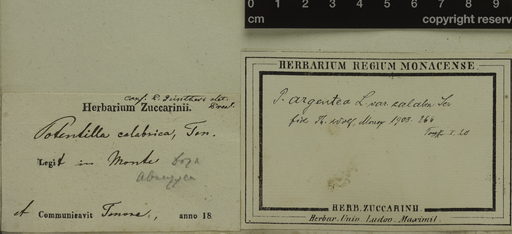 0 1 2 3 4 5 6 7 8 9
cm
copyright reserv
conf. E. det.
Herbarium Zuccarinii.
Potentilla calabrica, Ten.
Legit in Monte
et Communicavit Tenore, anno 18
HERBARIUM REGIUM MONACENSE.
P. argentea L. var. calabra Ser
fide Th. Wolf Monogr 1908. 264
HERB. ZUCCARINII
Herbar. Univ. Ludov. Maximil.